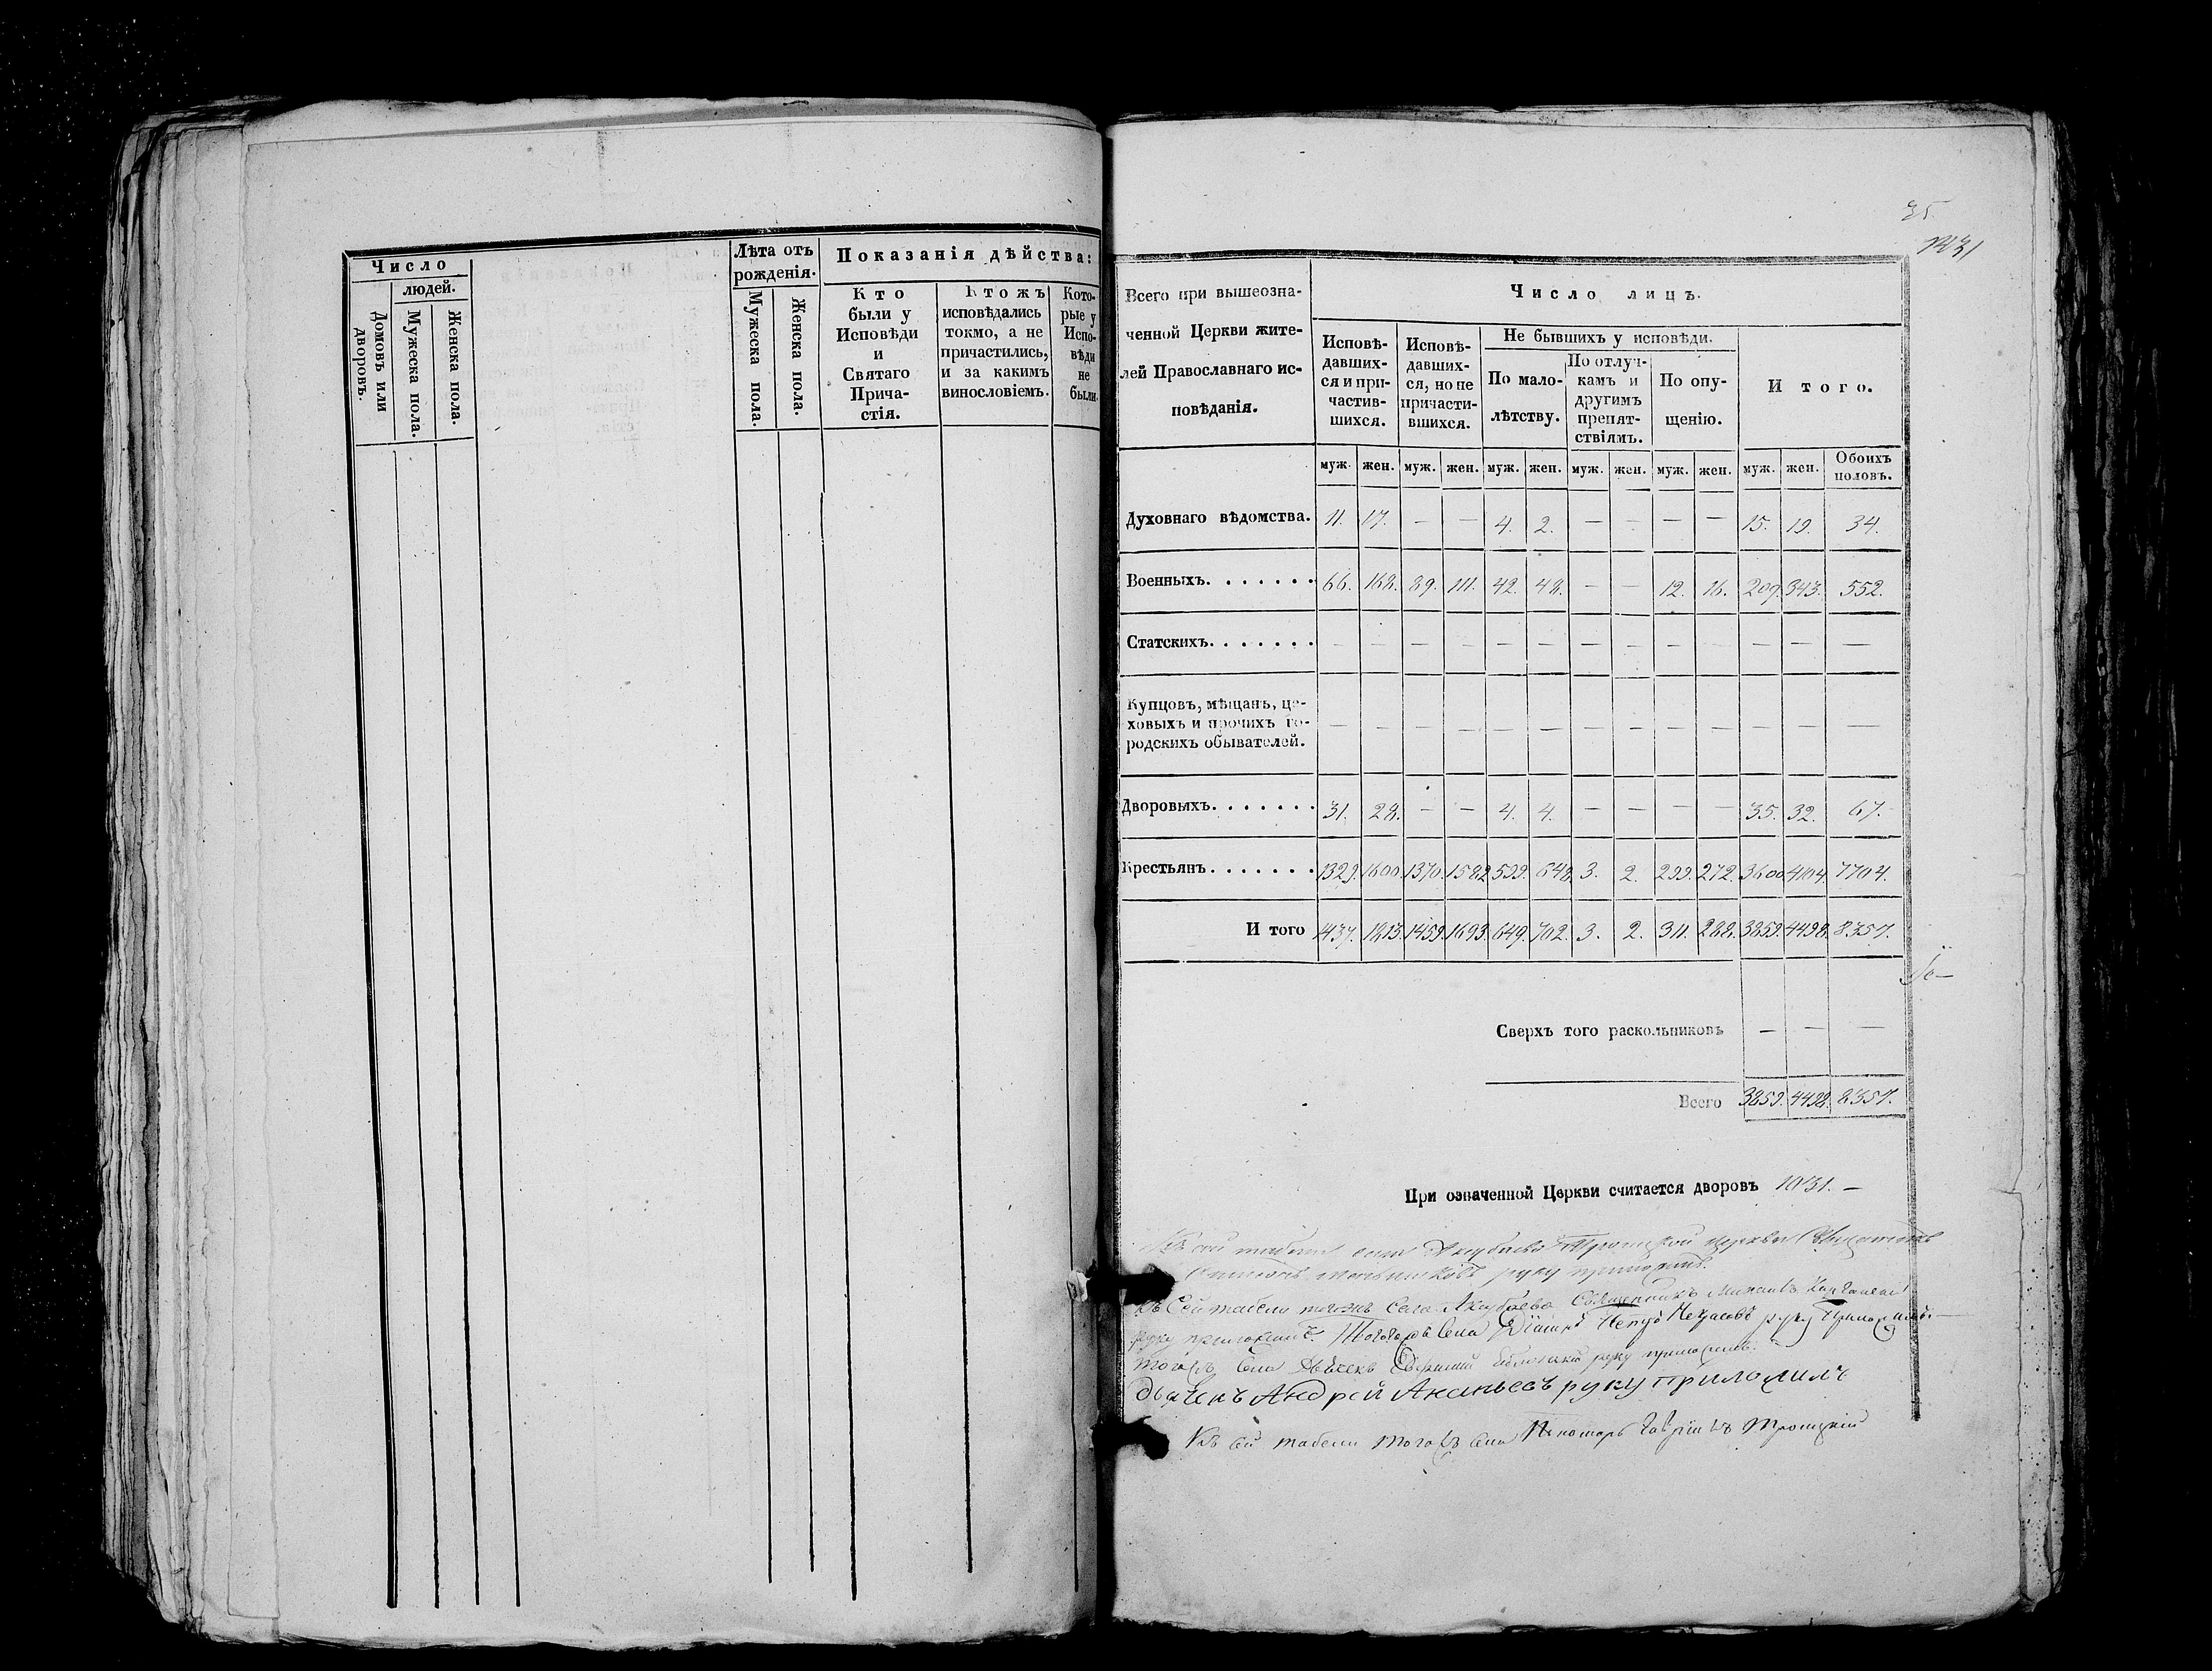 Число
людей.
Домовъ или дворовъ.
Мужеска пола.
Женска пола.
Лѣта отъ
рожденія.
Мужеска пола.
Женска пола.
Показанія дѣйства:
Кто
были у
Исповѣди
и
Святаго
Прича-
стія.
Ктожъ
исповѣдались
токмо, а не
причастились,
и за какимъ
винословіемъ.
Кото-
рые у
Испо-
вѣди
не
были.
35
1031
Всего при вышеозна-
ченной Церкви жите-
лей Православнаго ис-
повѣданія.
Число лицъ.
Исповѣ-
давших-
ся и при-
частив-
шихся.
Исповѣ-
давших-
ся, но не
причасти-
вшихся.
Не бывшихъ у исповѣди.
По мало-
лѣтству.
По отлуч-
камъ и
другимъ
препят-
ствіямъ.
По опу-
щенію.
Итого.
муж. жен. муж. жен. муж. жен. муж. жен. муж. жен. муж. жен. Обоихъ половъ.
Духовнаго вѣдомства. 11. 17. — — 4. 2. — — — — 15. 19. 34.
Военныхъ....... 66. 168. 89. 111. 42. 48. — — 12. 16. 209. 343. 552.
Статскихъ....... — — — — — — — — — — — — —
Купцовъ, мѣщанъ, це-
ховыхъ и прочихъ го-
родскихъ обывателей. — — — — — — — — — — — — —
Дворовыхъ....... 31. 28. — — 4. 4. — — — — 35. 32. 67.
Крестьянъ....... 1329. 1600. 1370. 1582 599. 648. 3. 2. 299. 272. 3600 4104. 7704.
И того 1437. 1813. 1459. 1693. 649. 702. 3. 2. 311. 288. 3859. 4498. 8357.
Сверхъ того раскольниковъ — — —
Всего 3859. 4498. 8357.
При означенной Церкви считается дворовъ 1031. —
Троицкой церкви Священникъ
руку приложилъ.
Къ Сей табели тогожъ Села Акубаева Священникъ Михаилъ
руку приложилъ. Тогожъ Села Діаконъ Петръ Некрасовъ руку Приложилъ. —
Тогожъ Села Дьячекъ руку приложилъ.
дьячекъ Андрей Ананьевъ руку приложилъ
Къ сей табели тогожъ села Пономарь Гавріилъ Троицкій